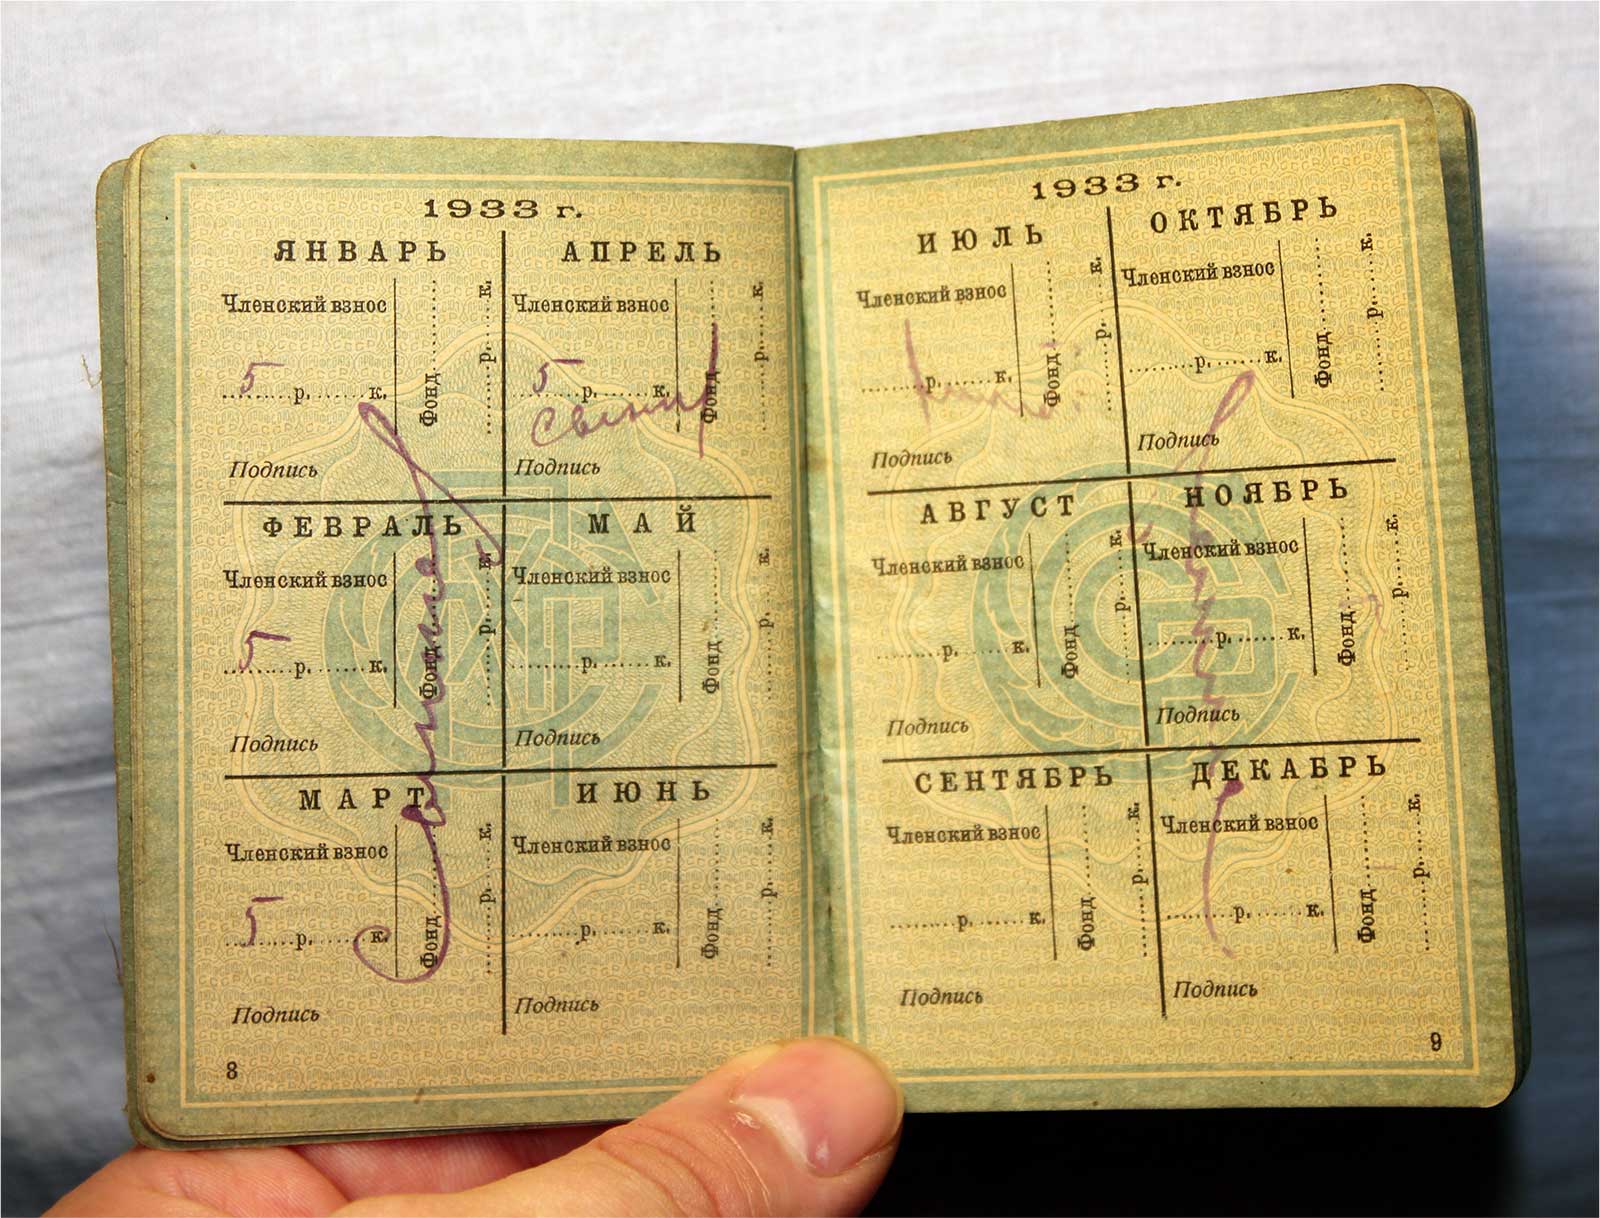 1933 г.
ЯНВАРЬ
Членский взнос
5 р. к.
Фонд
р. к.
Подпись
АПРЕЛЬ
Членский взнос
5 р. к.
Фонд
р. к.
Подпись
ФЕВРАЛЬ
Членский взнос
5 р. к.
Фонд
р. к.
Подпись
МАЙ
Членский взнос
р. к.
Фонд
р. к.
Подпись
МАРТ
Членский взнос
5 р. к.
Фонд
р. к.
Подпись
ИЮНЬ
Членский взнос
р. к.
Фонд
р. к.
Подпись
8
1933 г.
ИЮЛЬ
Членский взнос
р. к.
Фонд
р. к.
Подпись
ОКТЯБРЬ
Членский взнос
р. к.
Фонд
р. к.
Подпись
АВГУСТ
Членский взнос
р. к.
Фонд
р. к.
Подпись
НОЯБРЬ
Членский взнос
р. к.
Фонд
р. к.
Подпись
СЕНТЯБРЬ
Членский взнос
р. к.
Фонд
р. к.
Подпись
ДЕКАБРЬ
Членский взнос
р. к.
Фонд
р. к.
Подпись
9